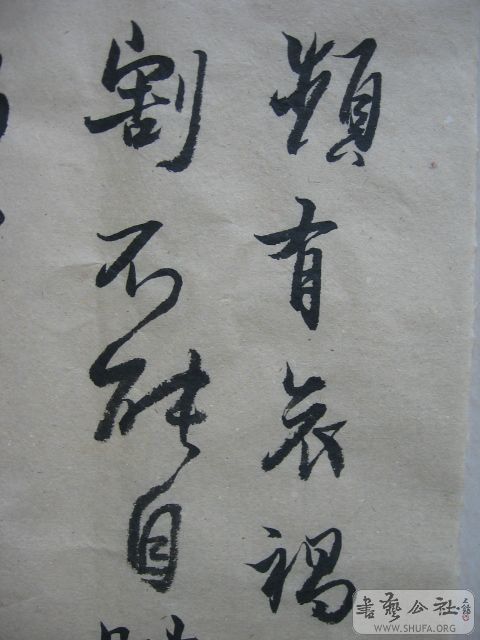 頻有哀禍
割不能自
書藝公社
WWW.SHUFA.ORG